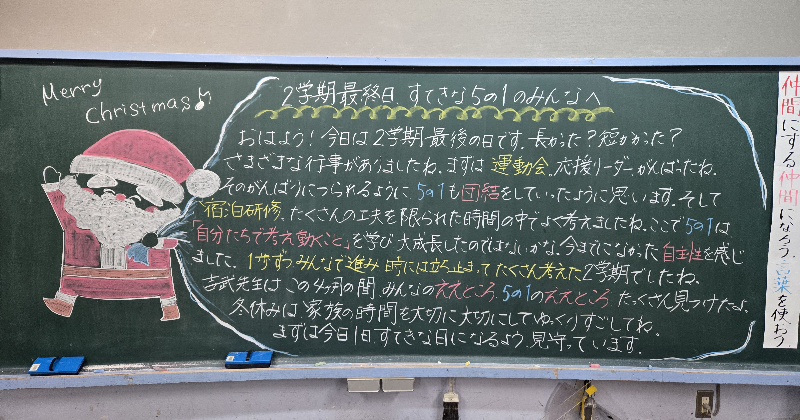 Merry
Christmas♪
2学期最終日 すてきな5の1のみんなへ
おはよう！今日は2学期最後の日です。長かった？短かかった？
さまざまな行事がありましたね。まずは運動会。応援リーダーがんばったね。
そのがんばりにつられるように、5の1も団結をしていったように思います。そして
宿泊研修。たくさんの工夫を限られた時間の中でよく考えましたね。ここで5の1は
「自分たちで考え動くこと」を学び大成長したのではないかな。今までになかった自主性を感じ
ました。1歩ずつみんなで進み 時には立ち止まってたくさん考えた2学期でしたね。
吉武先生はこの4ヶ月の間 みんなのええところ、5の1のええところ たっくさん見つけたよ。
冬休みは家族の時間を大切に大切にしてゆっくりすごしてね。
まずは今日1日すてきな日になるよう、見守っています。
仲間にする仲間になろう、言葉を使おう